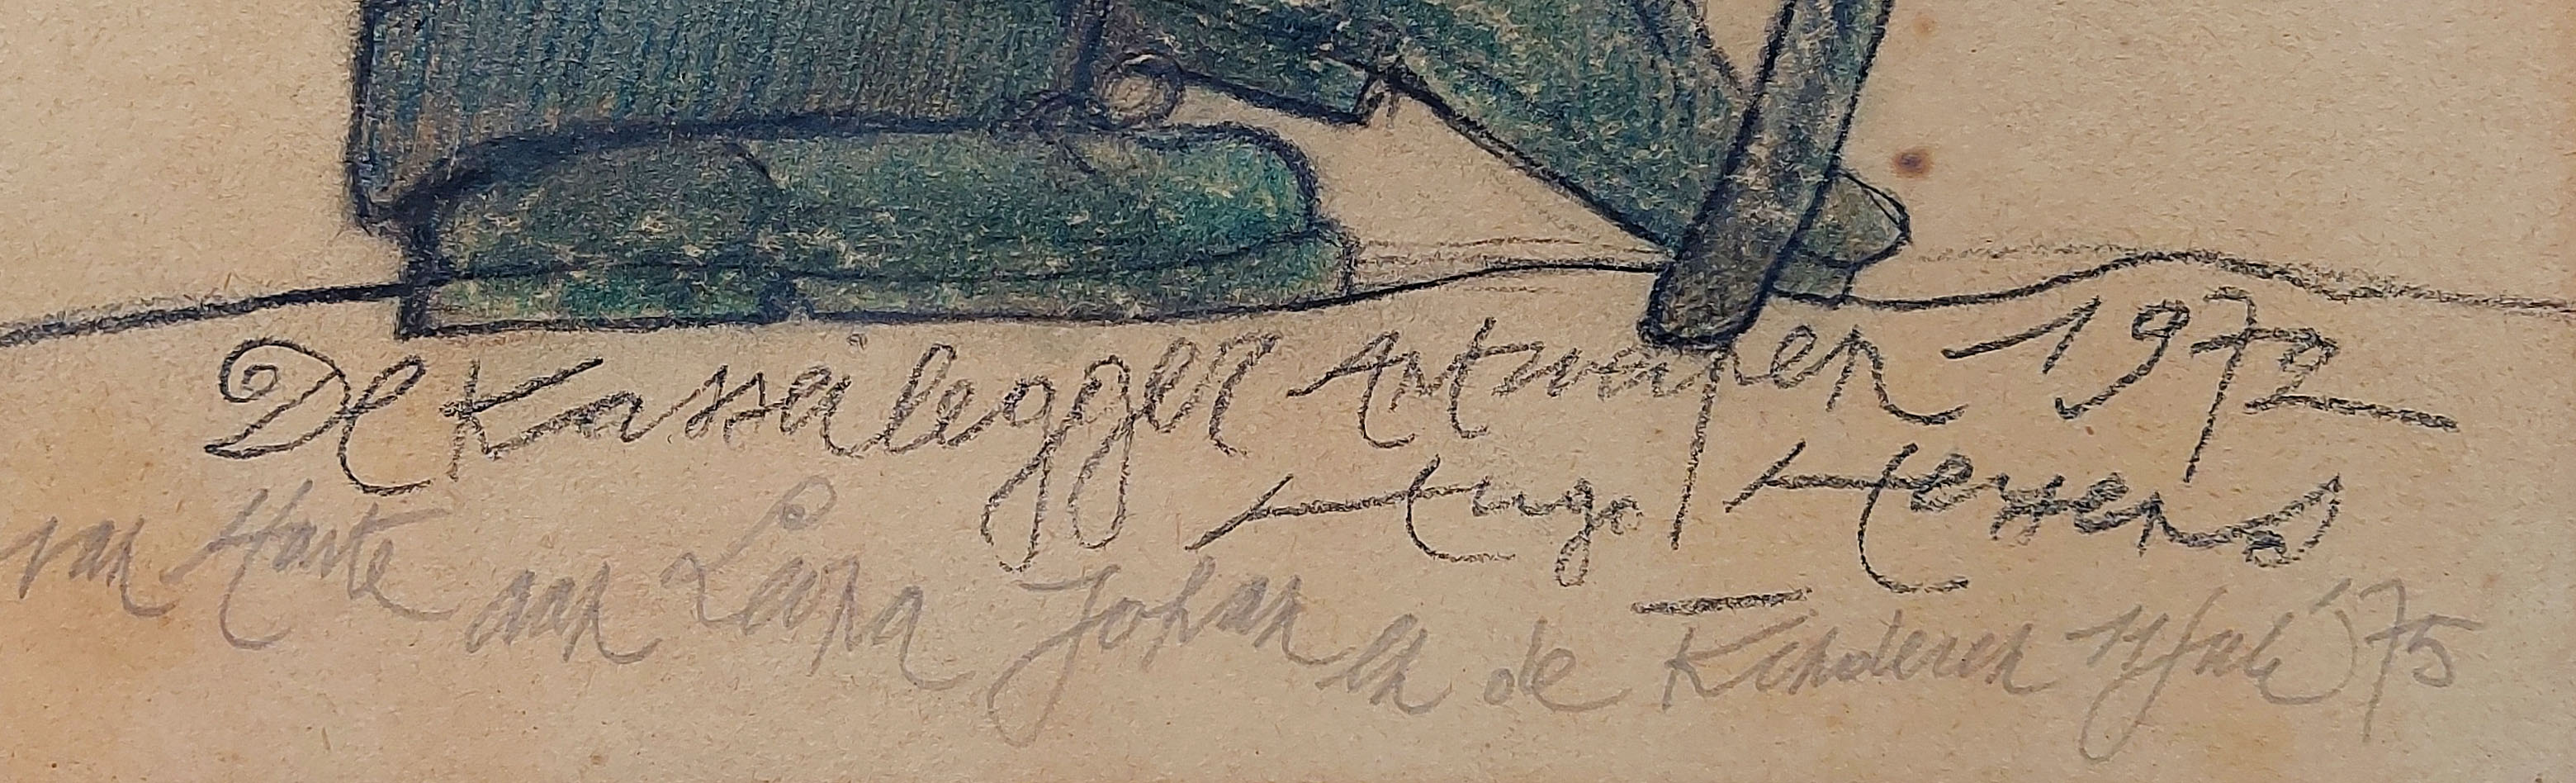 De Kasseilegger Antwerpen 1972
Hugo Heyens
van Harte aan Liesa Johan en de Kinderen 11 Juli '75